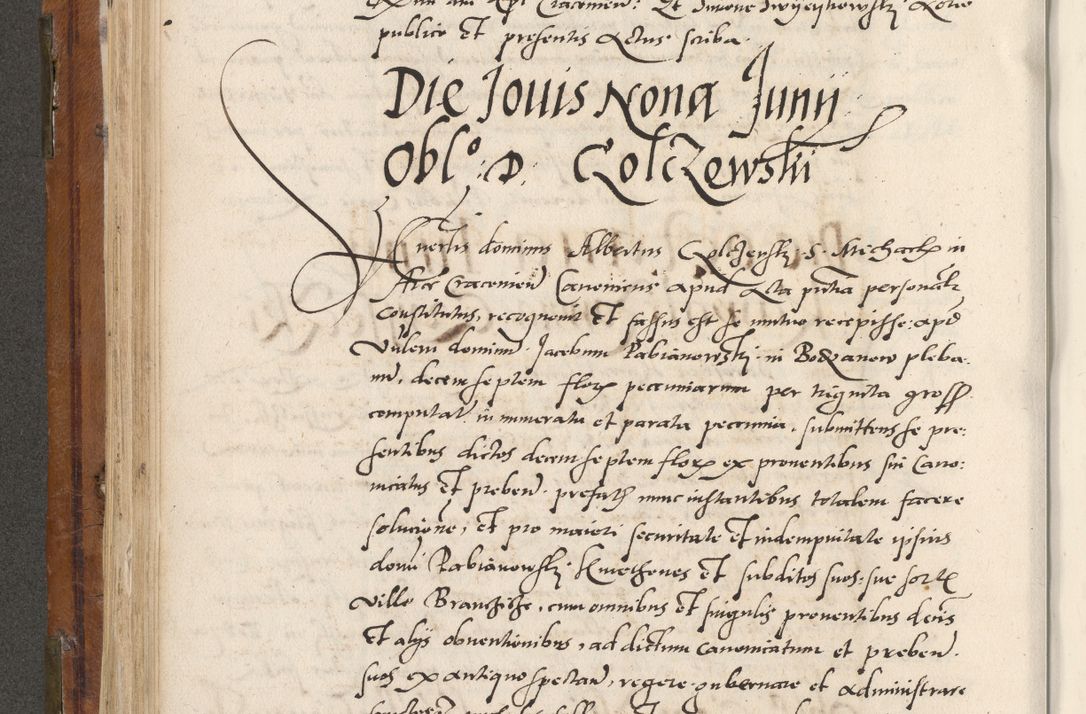 publico et presentis Actus scriba.
Die Jouis Nona Junij
Obl° D. Golczewski
Venerlis dominus Albertus Golczewsky S. Michaelis in
Arce Cracovien Canonicus apud Acta pntia personalr
Constitutus, recognouit et fassus est se mutuo recepisse apd
Vnlem dominum Jacobum Rabianowsky in Bodzanow pleba:
num, decem septem flor pecuniarum per triginta gross
computat in numerata et parata pecunia, submittens se pre:
sentibus dictos decem septem flor ex prouentibus sui Cano:
nicatus et preben. prefat nunc instantibus totalem facere
solucione, et pro maiori securitate et indempnitate ipsius
domi Rabianowsky Kmethones et subditos suos sue sortis
ville Branczicze, cum omnibus et singulis prouentibus decis
et alijs obuentionibus, ad dictum Canonicatum et preben.
suos ex antiquo spectan, regere gubernare et administrare